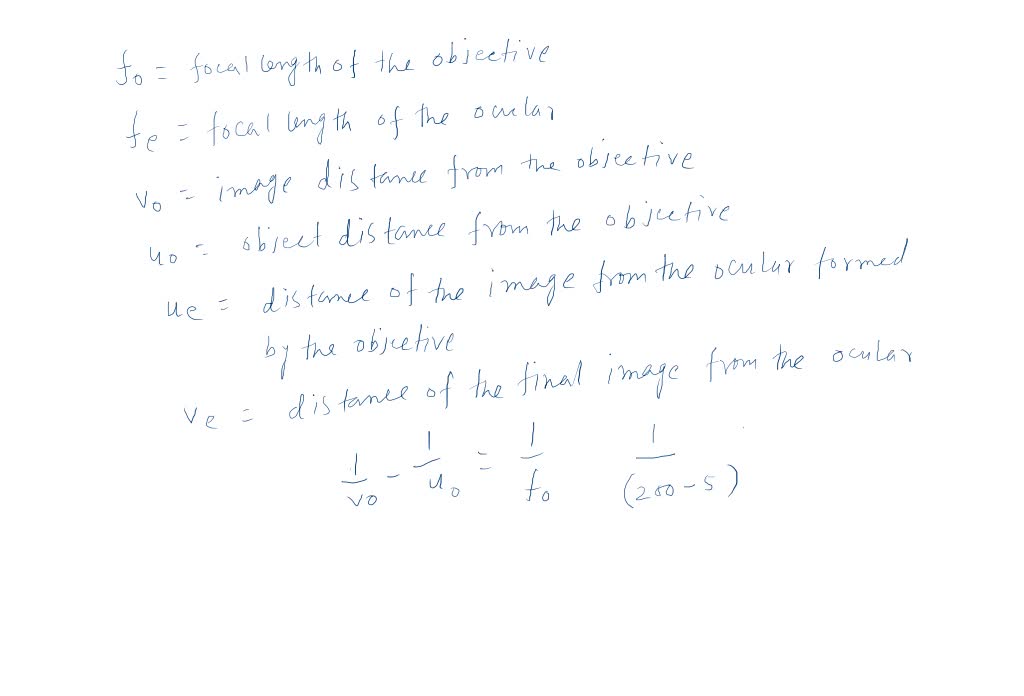 fo = focal length of the objective
fe = focal length of the ocular
vo = image distance from the objective
uo = object distance from the objective
ue = distance of the image from the ocular formed
by the objective
ve = distance of the final image from the ocular
1/vo - 1/uo = 1/fo 1/(200-5)